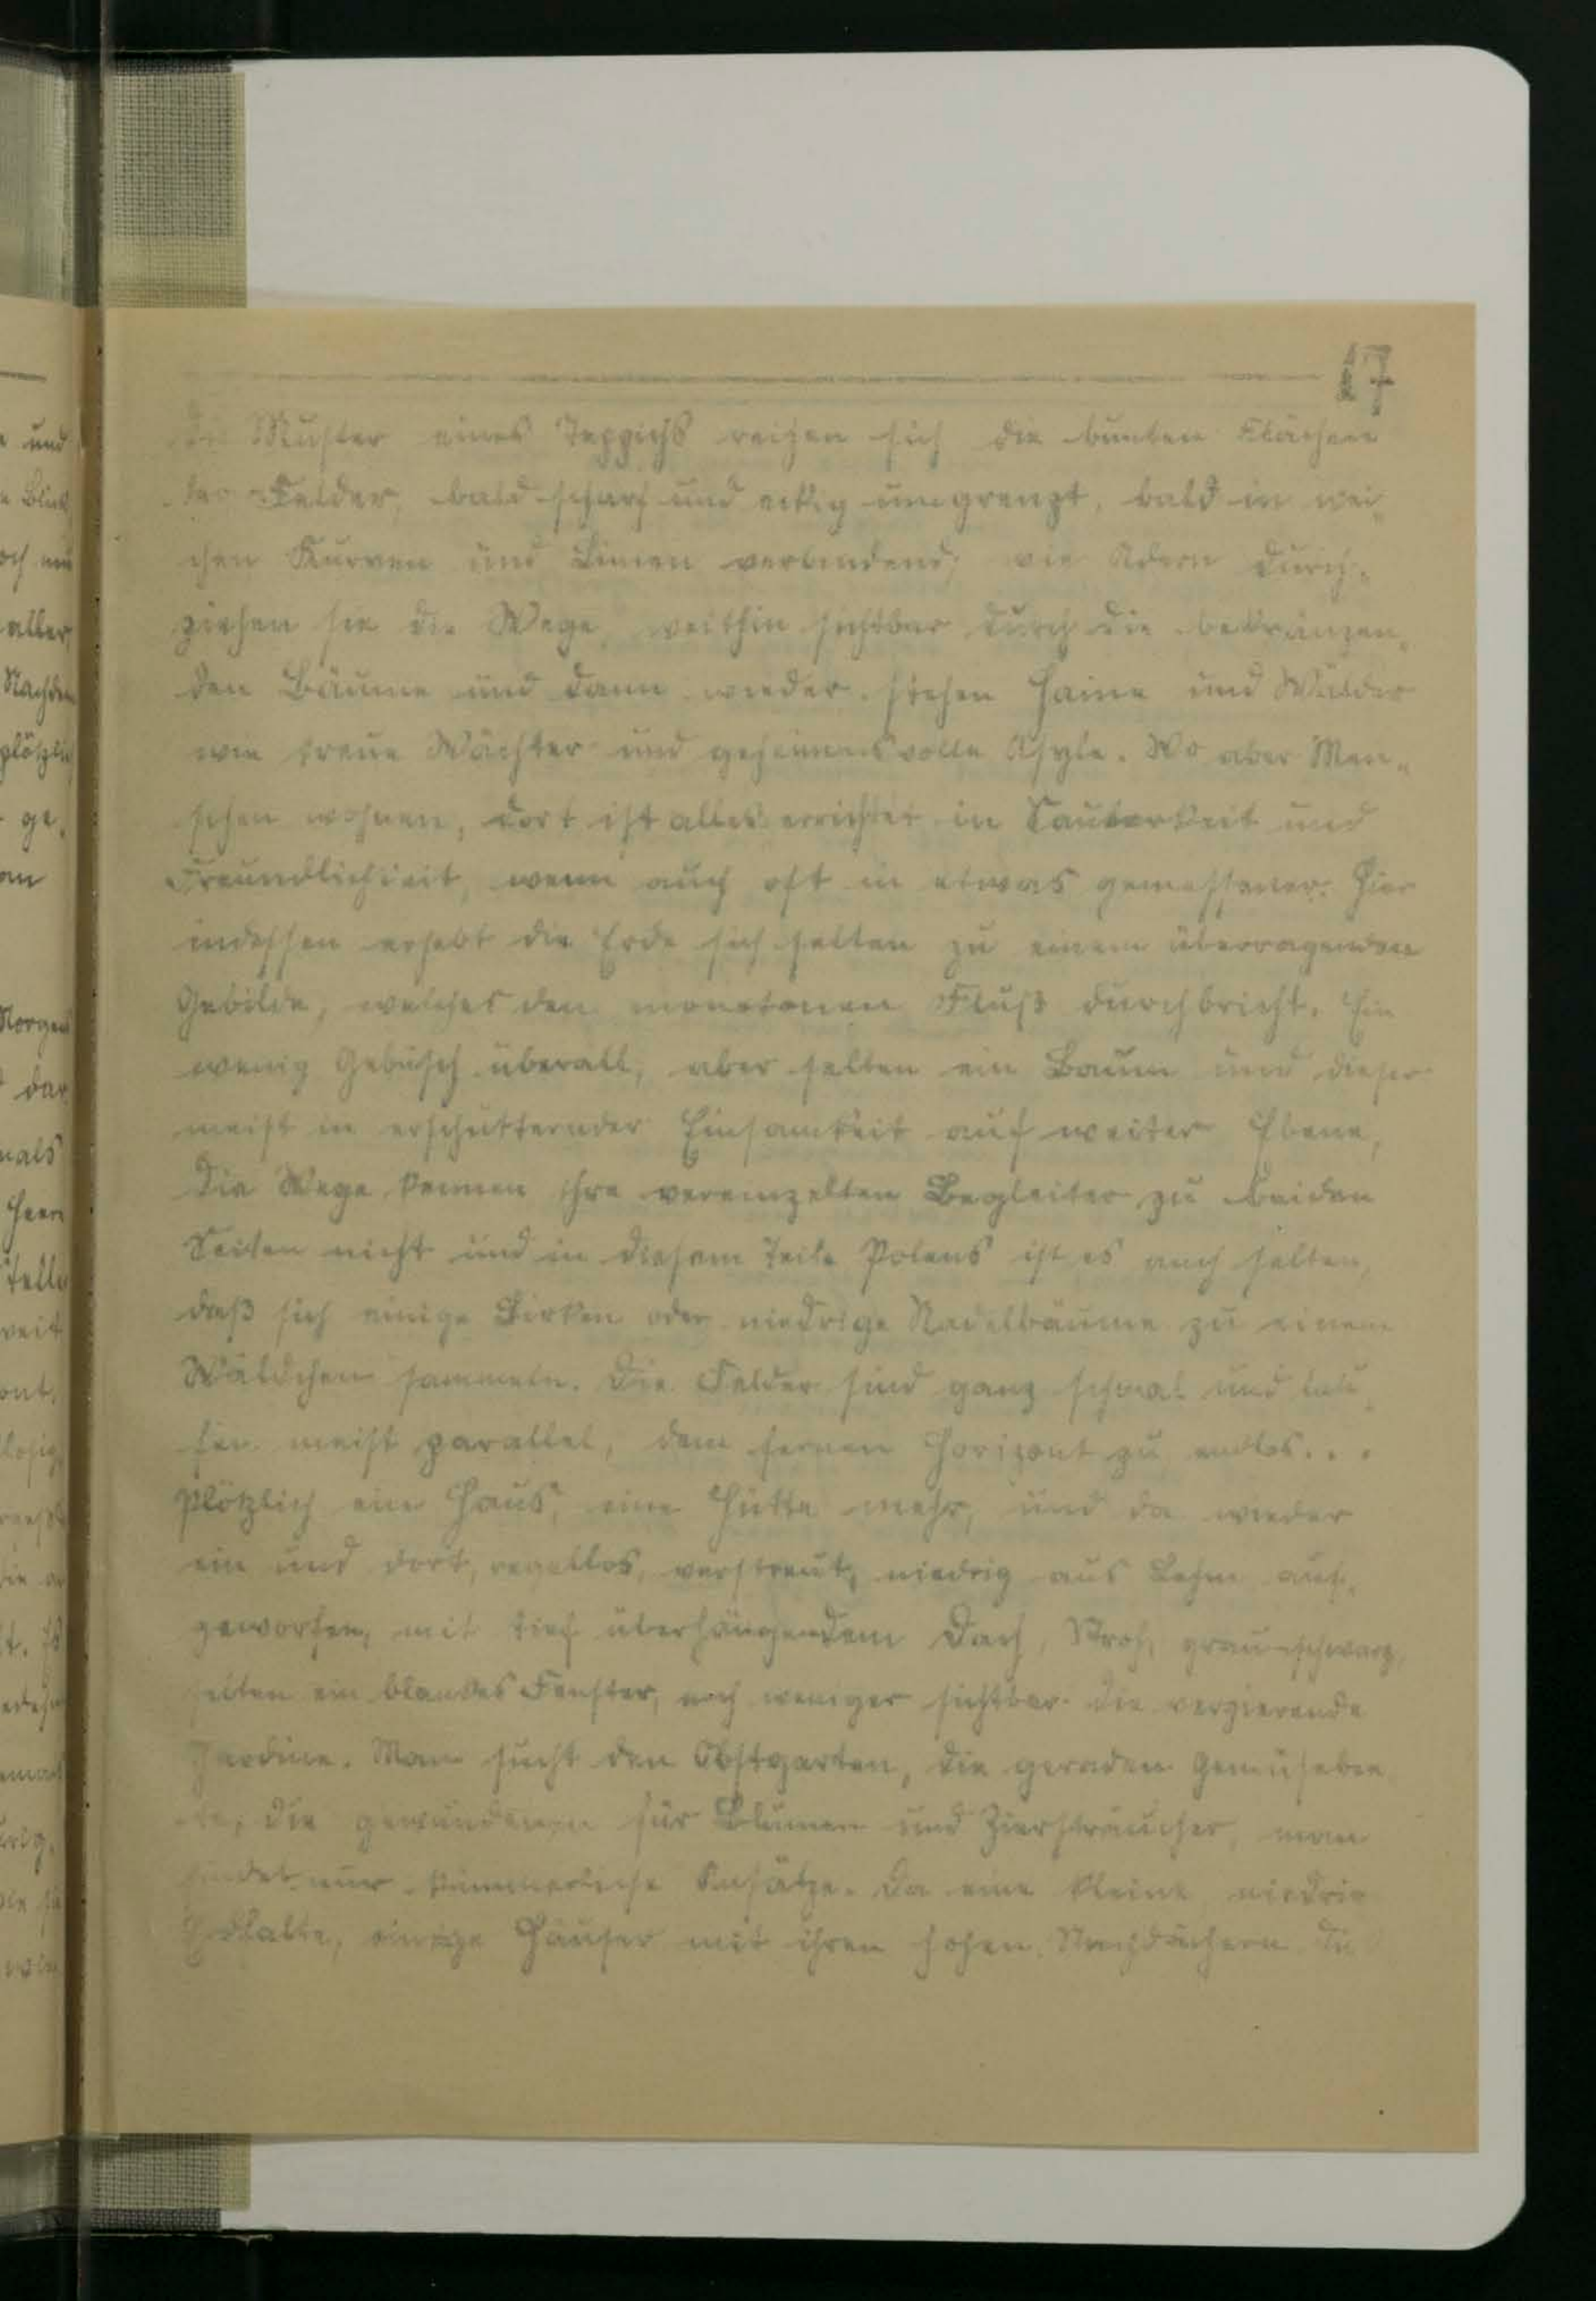 17
die Muster eines Teppichs reihen sich die bunten Flächen
der Felder, bald scharf und eckig umgrenzt, bald in wei-
chen Kurven und Linien verbindend; wie Adern durch-
ziehen sie die Wege, weithin sichtbar durch die bekränzen-
den Bäume und dann wieder stehen Haine und Wälder
wie treue Wächter und geheimnisvolle Asyle. Wo aber Men-
schen wohnen, dort ist alles errichtet in Sauberkeit und
Freundlichkeit, wenn auch oft in etwas gemessener. Hier
indessen erhebt die Erde sich selten zu einem überragenden
Gebilde, welches den monotonen Fluß durchbricht. Ein
wenig Gebüsch überall, aber selten ein Baum und dieser
meist in erschütternder Einsamkeit auf weiter Ebene,
die Wege kennen ihre vereinzelten Begleiter zu beiden
Seiten nicht und in diesem Teile Polens ist es auch selten,
daß sich einige Birken oder niedrige Nadelbäume zu einem
Wäldchen sammeln. Die Felder sind ganz schmal und lau-
fen meist parallel, dem fernen Horizont zu endlos...
Plötzlich ein Haus, eine Hütte mehr, und da wieder
ein und dort, regellos, verstreut, niedrig aus Lehm auf-
geworfen, mit tief überhängendem Dach, Stroh, grau-schwarz,
selten ein blankes Fenster, noch weniger sichtbar die verzierende
Gardine. Man sucht den Obstgarten, die geraden Gemüsebee-
te, die gewundenen für Blumen und Ziersträucher, man
findet nur kümmerliche Ansätze. Da eine kleine, niedrige
einige Häuser mit ihren hohen die
und
Blick
aller
Nachdem
plötzlich
ge-